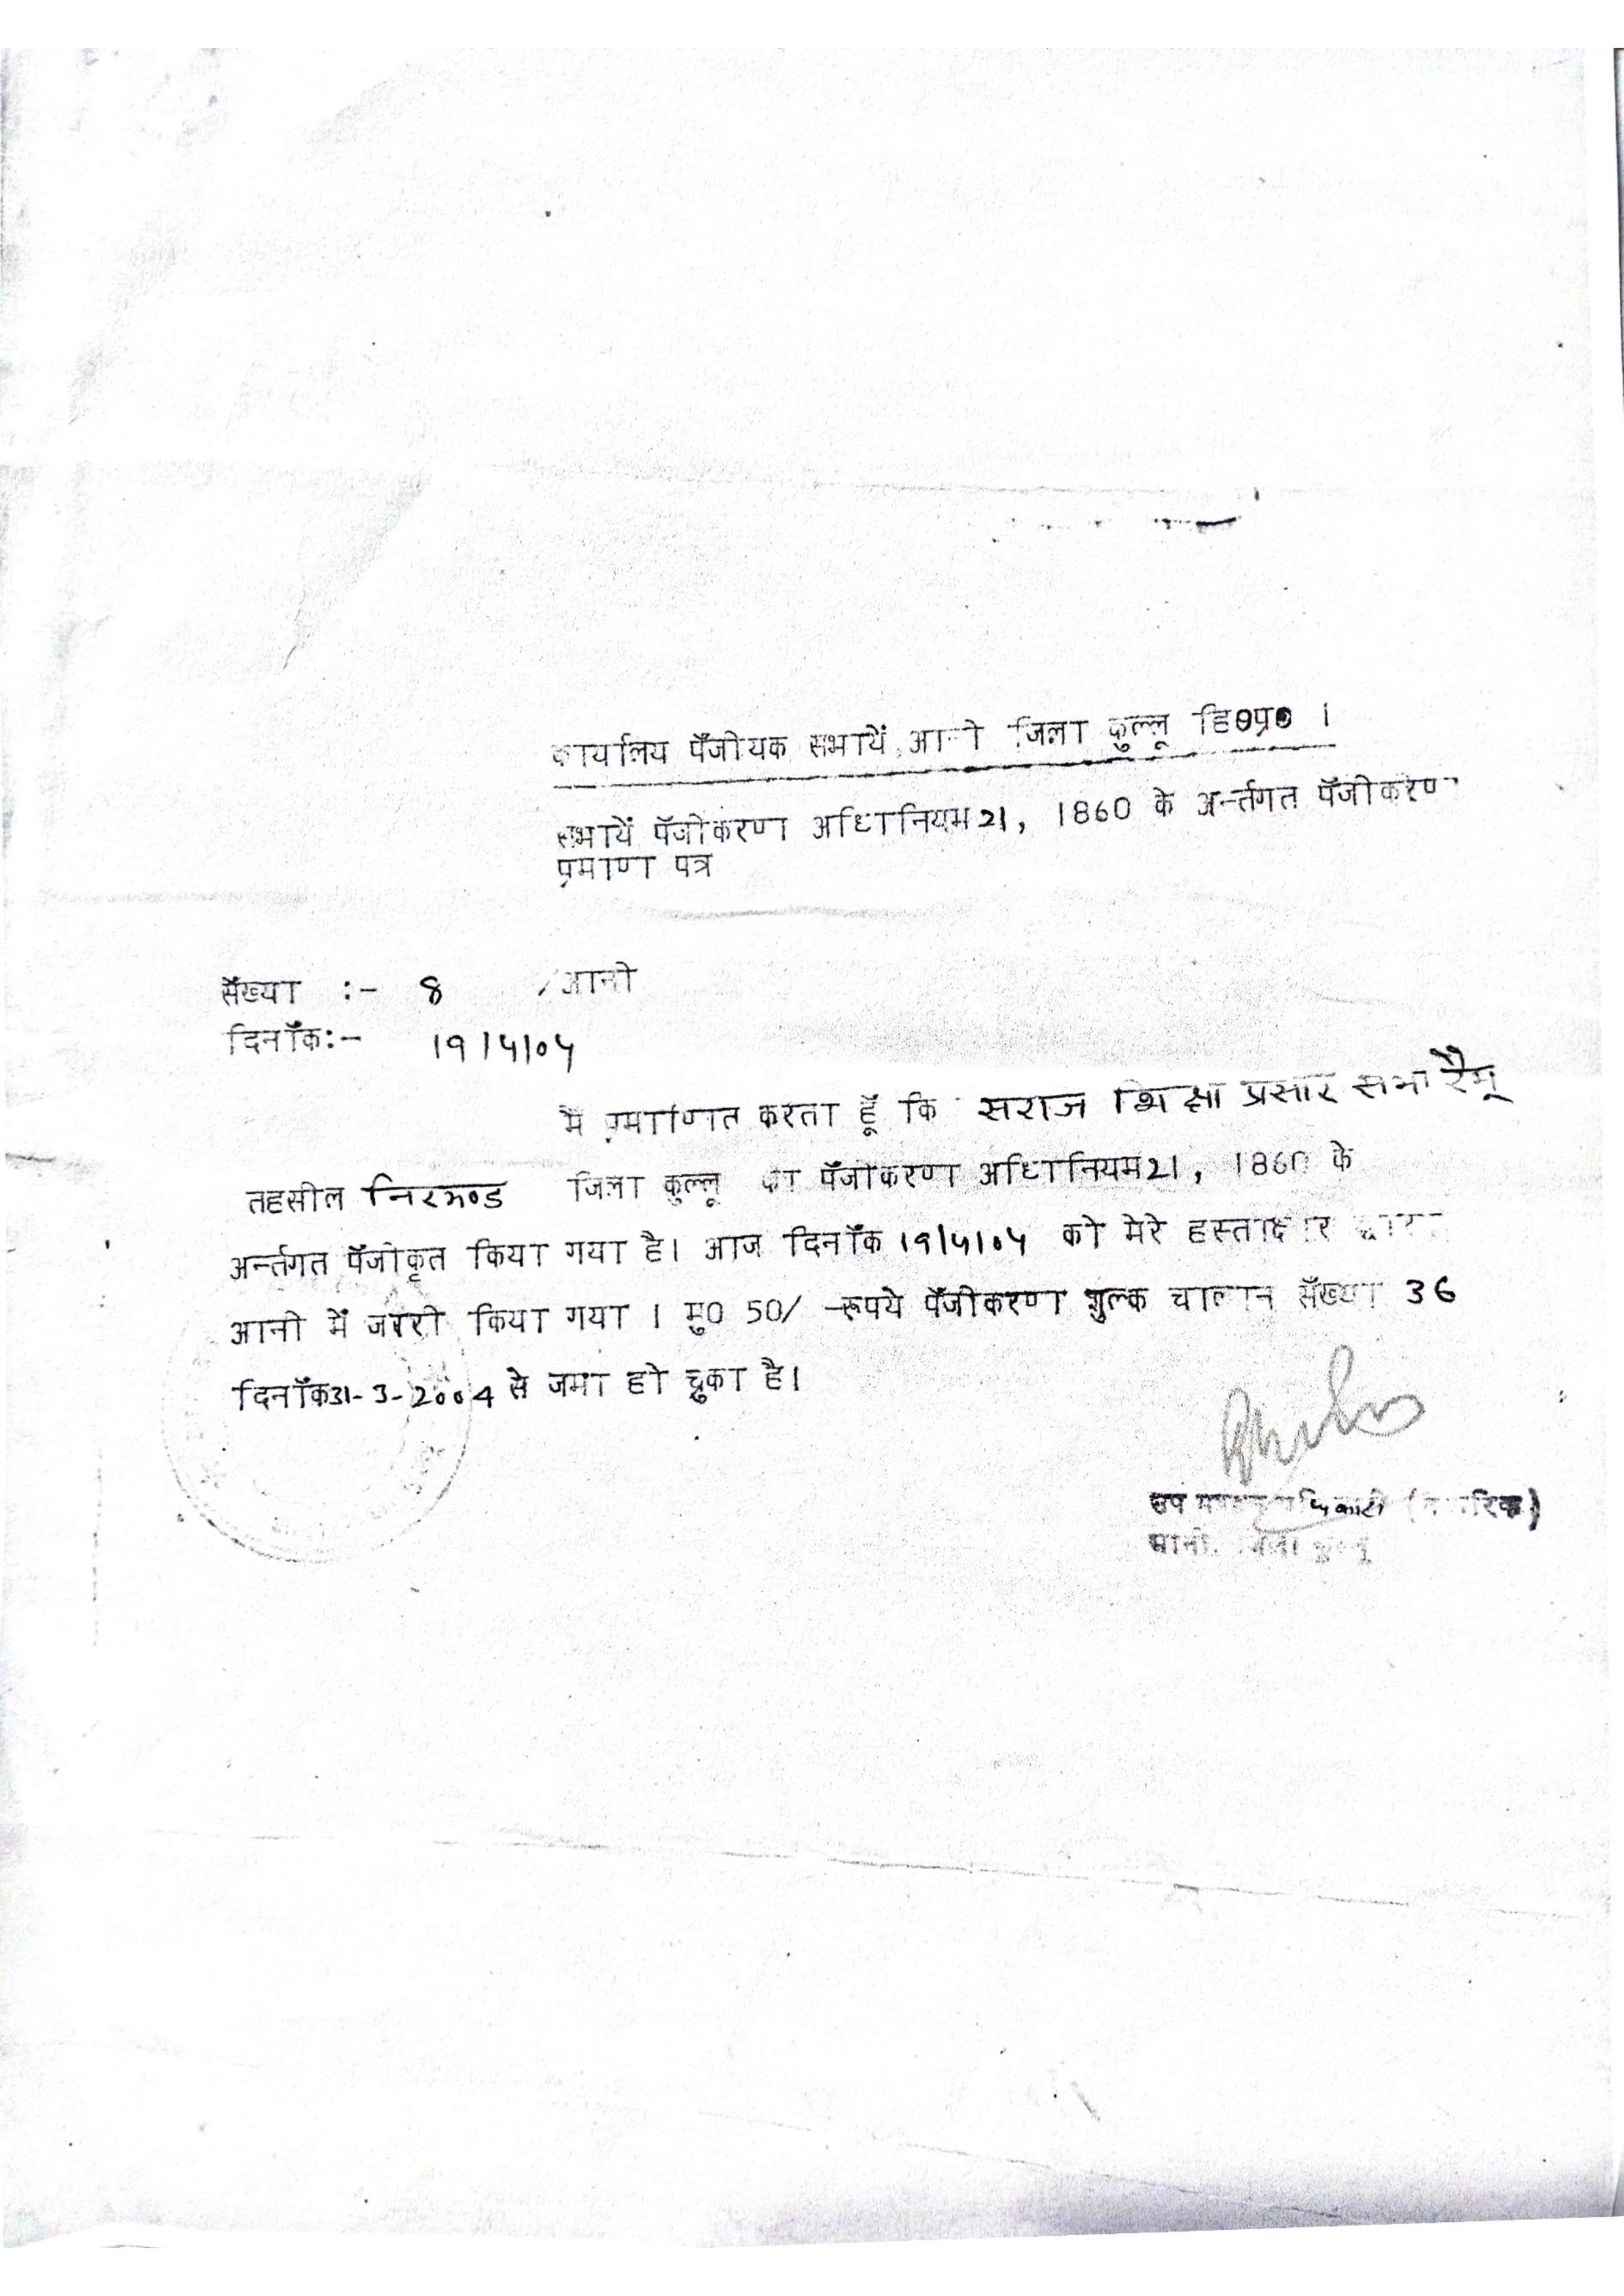 कार्यालय पॅंजीयक सभायें आनी जिला कुल्लू हि0प्र0 ।
सभायें पॅंजीकरण अधिनियम21, 1860 के अर्न्तगत पॅंजीकरण
प्रमाण पत्र
सॅंख्या :- 8 /आनी
दिनॉंक:- 19/4/04
मैं प्रमाणित करता हूॅं कि सराज शिक्षा प्रसार सभा रैमू
तहसील निरमण्ड जिला कुल्लू का पॅंजीकरण अधिनियम21, 1860 के
अर्न्तगत पॅंजीकृत किया गया है। आज दिनॉंक 19/4/04 को मेरे हस्ताक्षर द्वारा
आनी में जारी किया गया । मु0 50/-रूपये पॅंजीकरण शुल्क चालान सॅंख्या 36
दिनॉंक31-3-2004 से जमा हो चुका है।
उप मण्डल अधिकारी (नागरिक)
आनी, जिला कुल्लू